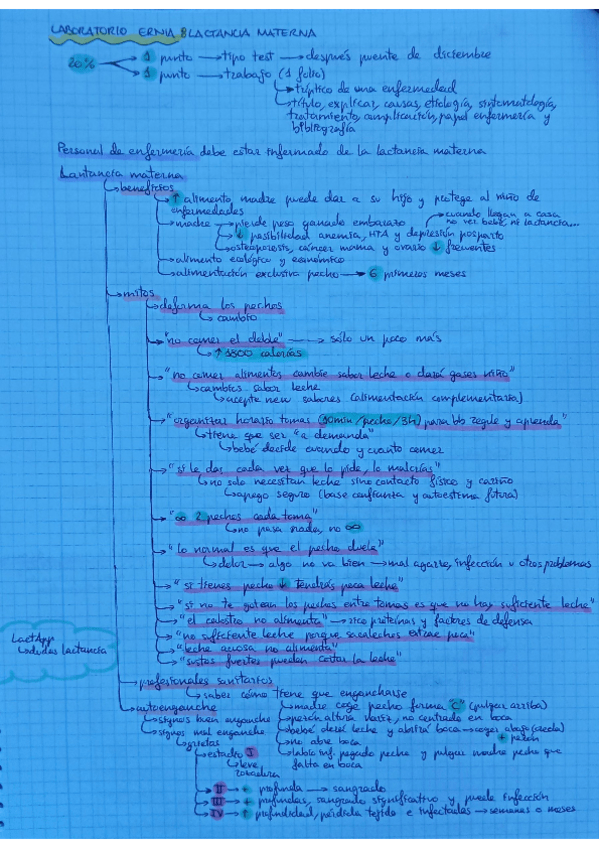 LABORATORIO ERNIA 8 LACTANCIA MATERNA
20% → 1 punto → tipo test → después puente de diciembre
→ 1 punto → trabajo (1 folio)
→ tríptico de una enfermedad
→ título, explicar, causas, etiología, sintomatología,
tratamiento, complicación, papel enfermería y
bibliografía
Personal de enfermería debe estar informado de la lactancia materna
Lactancia materna
→ beneficios
→ ↑ alimento, madre puede dar a su hijo y protege al niño de
enfermedades
→ madre → pierde peso ganado embarazo
→ cuando llegan a casa
no ver bebé, ni lactancia...
→ ↓ posibilidad anemia, HTA y depresión posparto
→ osteoporosis, cáncer mama y ovario ↓ frecuentes
→ alimento ecológico y económico
→ alimentación exclusiva pecho → 6 primeros meses
→ mitos
→ deforma los pechos
→ cambio
→ "no comer el doble" → sólo un poco más
→ ↑ calorías
→ "no comer alimentos cambie sabor leche o dará gases niño"
→ cambios sabor leche
→ acepte new sabores (alimentación complementaria)
→ "organizar horario tomas (10min/pecho/3h) para bb regule y aprenda"
→ tiene que ser "a demanda"
→ bebé decide cuando y cuanto comer
→ "si le das cada vez que lo pide, lo malcrías"
→ no solo necesitan leche sino contacto físico y cariño
→ apego seguro (base confianza y autoestima futura)
→ "∞ 2 pechos cada toma"
→ no pasa nada, no ∞
→ "lo normal es que el pecho duela"
→ dolor → algo no va bien → mal agarre, infección u otros problemas
→ "si tienes pecho ↓ tendrás poca leche"
→ "si no te gotean los pechos entre tomas es que no hay suficiente leche"
→ "el calostro no alimenta" → rico proteínas y factores de defensa
→ "no suficiente leche porque sacaleches extrae poca"
→ "leche acuosa no alimenta"
→ "sustos fuertes pueden cortar la leche"
LactApp
→ dudas lactancia
→ profesionales sanitarios
→ saber cómo tiene que engancharse
→ autoenganche
→ madre coge pecho forma "C" (pulgar arriba)
→ signos bien enganche
→ pezón altura nariz, no centrado en boca
→ bebé leche y abrirá boca → coger abajo (areola)
+ pezón
→ signos mal enganche
→ no abre boca
→ labio inf. pegado pecho y pulgar madre pecho que
falta en boca
→ grietas
→ estadio I
→ leve
rozadura
→ II → + profunda → sangrado
→ III → + profundas, sangrado significativo y puede infección
→ IV → ↑ profundidad, pérdida tejido e infectadas → semanas o meses